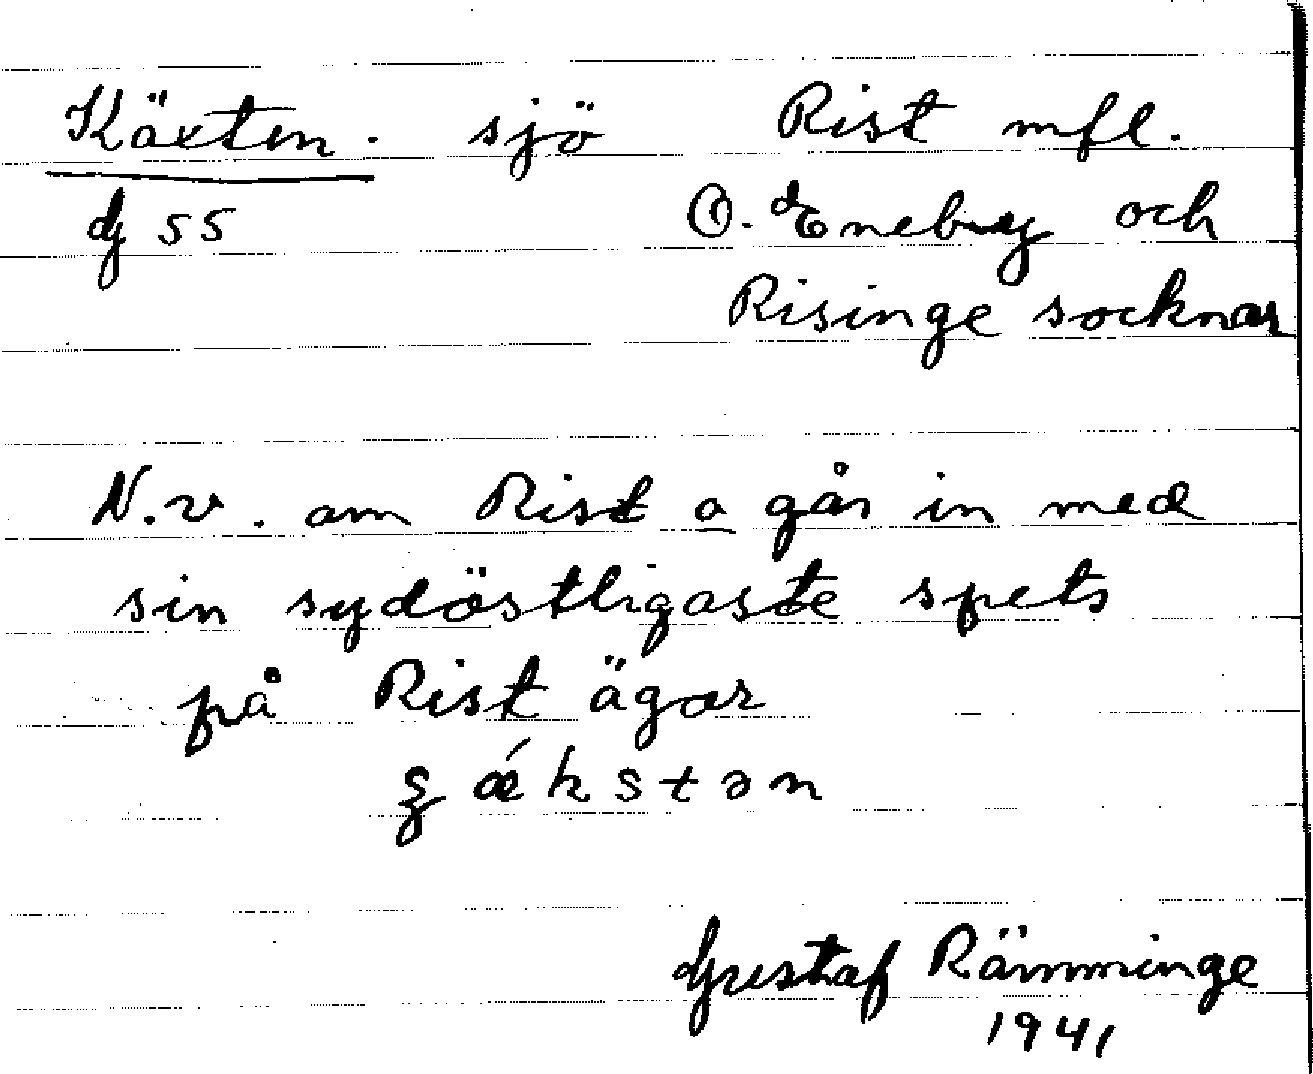 Käxten. sjö Rist mfl.
G 55 Ö. Eneby och
Risinge socknar
N.v. om Rist o går in med
sin sydöstligaste spets
på Rist ägor
ǽkstən
Gustaf Rämminge
1941